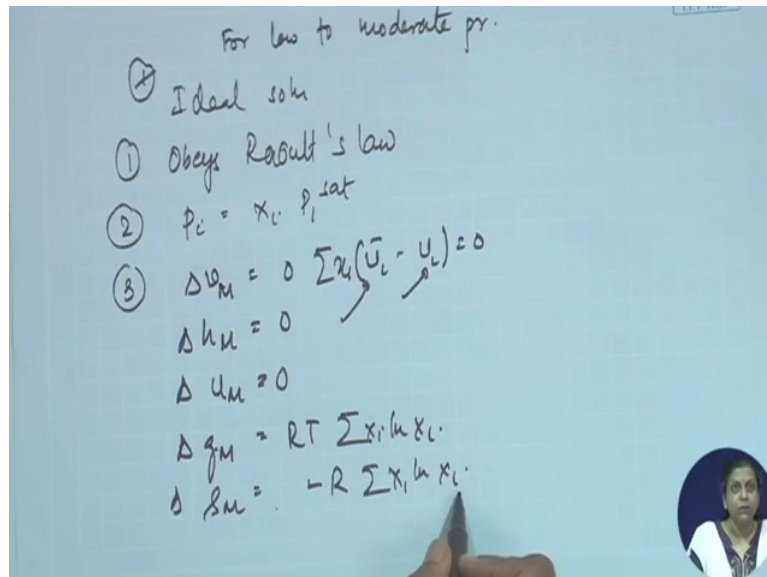 For low to moderate pr.
Ideal soln
① Obeys Raoult's law
② Pi = xi. Pi^sat
③ Δ𝑣M = 0 Σxi(Ūi - Ui) = 0
Δ hM = 0
Δ UM = 0
Δ gM = RT Σxi ln xi.
Δ SM = . - R Σxi ln xi.